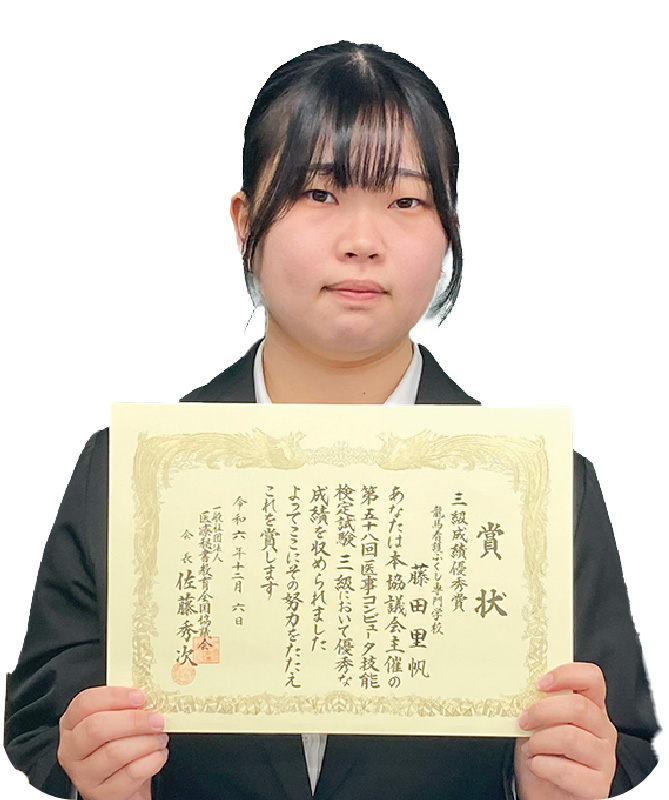 賞状
三級成績優秀賞
龍馬看護ふくし専門学校
藤田里帆
あなたは本協議会主催の
第五十八回医事コンピュータ技能
検定試験 三級において優秀な
成績を収められました
よってここにその努力をたたえ
これを賞します
令和六年十二月六日
一般社団法人
医療秘書教育全国協議会
会長 佐藤秀次